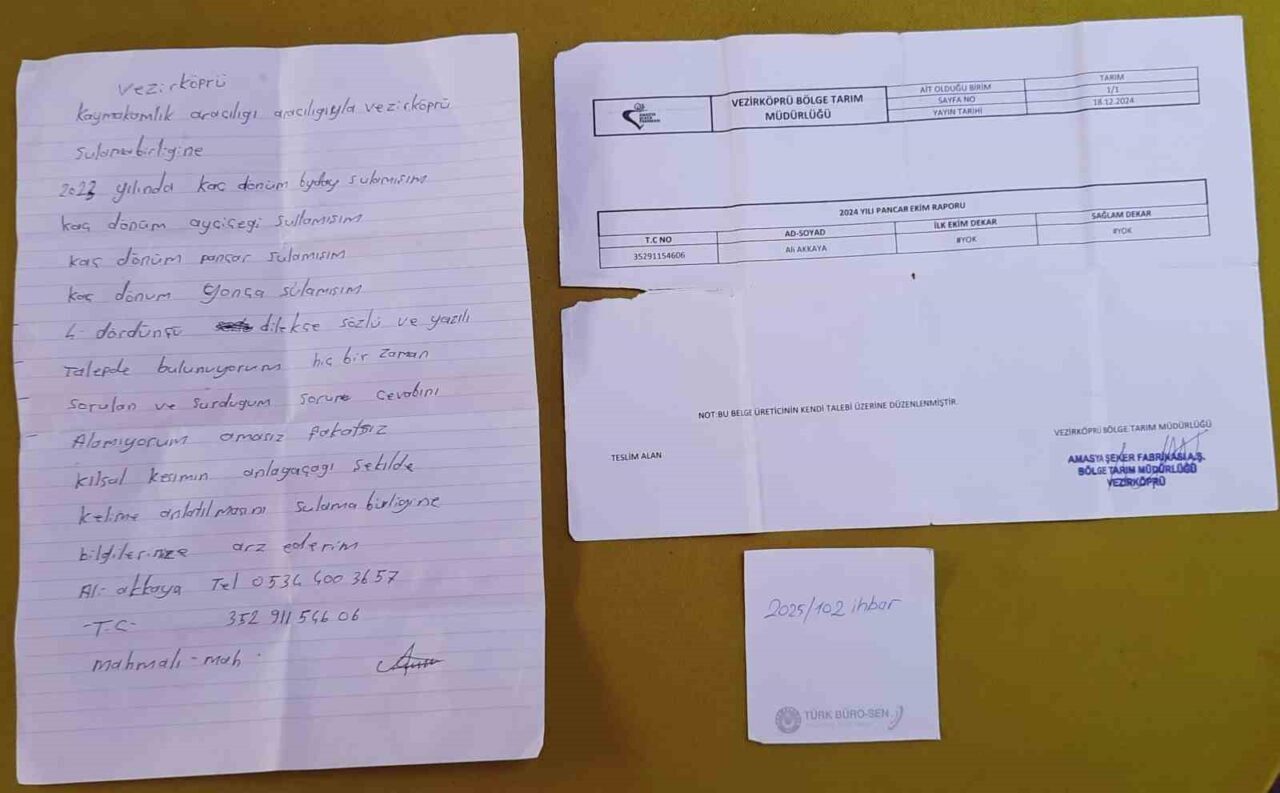 Vezirköprü
Kaymakamlık aracılıgı aracılıgıyla vezirköprü
Sulamabirligine
2023 yılında kaç dönüm byday sulamısım
kaç dönüm ayçiçegi sullamısım
kaç dönüm pançar sulamısım
kaç dönüm yonça sulamısım
4 dördünçü dilekçe sözlü ve yazılı
Talepde bulunuyorum hiç bir zaman
sorulan ve surdugum soruna cevabını
Alamıyorum amasız fakatsız
kılsal kesimin anlayaçagı sekilde
kelime anlatılmasını sulama birligine
bilgilerinize arz ederim
Ali akkaya Tel 0534 400 3657
-T.C- 352 911 546 06
mahmalı-mah
AMASYA ŞEKER FABRİKASI
VEZİRKÖPRÜ BÖLGE TARIM MÜDÜRLÜĞÜ
AİT OLDUĞU BİRİM TARIM
SAYFA NO 1/1
YAYIN TARİHİ 18.12.2024
2024 YILI PANCAR EKİM RAPORU
T.C NO AD-SOYAD İLK EKİM DEKAR SAĞLAM DEKAR
35291154606 Ali AKKAYA #YOK #YOK
NOT:BU BELGE ÜRETİCİNİN KENDİ TALEBİ ÜZERİNE DÜZENLENMİŞTİR.
TESLİM ALAN
VEZİRKÖPRÜ BÖLGE TARIM MÜDÜRLÜĞÜ
AMASYA ŞEKER FABRİKASI A.Ş.
BÖLGE TARIM MÜDÜRLÜĞÜ
VEZİRKÖPRÜ
2025/102 ihbar
TÜRK BÜRO-SEN